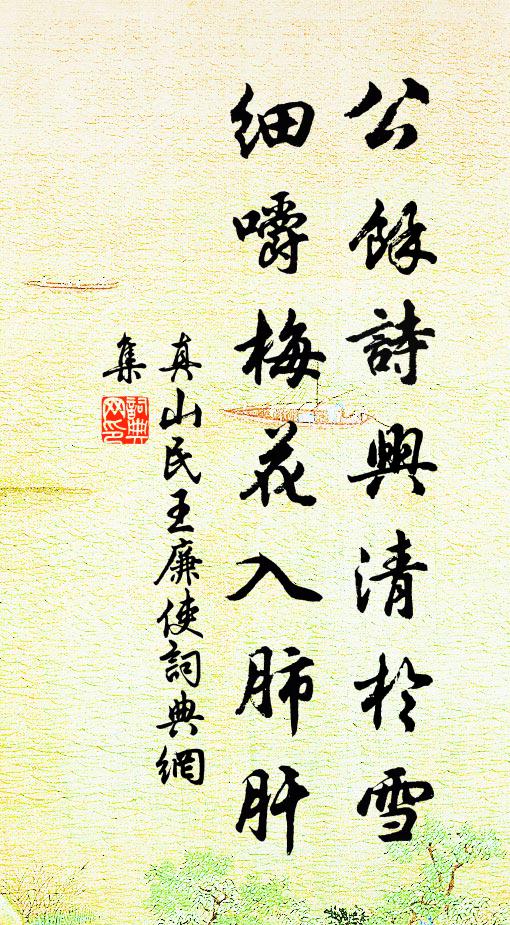 公餘詩興清於雪
細嚼梅花入肺肝
真山民王廉使詞典網
集
詞典網印